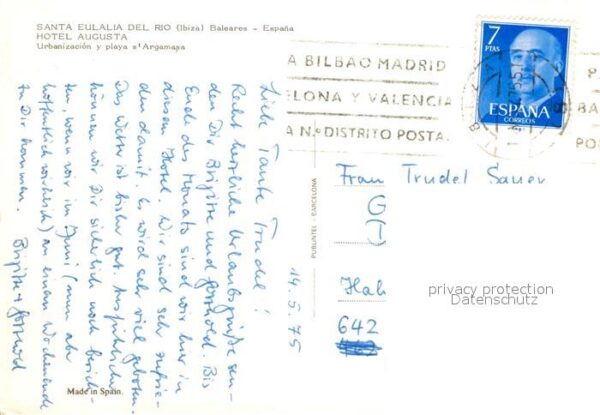 SANTA EULALIA DEL RIO (Ibiza) Baleares - España
HOTEL AUGUSTA
Urbanización y playa s'Argamasa
14.5.75
Liebe Tante Trudel!
Recht herzliche Urlaubsgrüße sen-
den Dir Brigitte und Gotthold. Bis
Ende des Monats sind wir hier in
diesem Hotel. Wir sind sehr zufrie-
den damit. Es wird sehr viel geboten.
Das Wetter ist bisher gut. Ausführlicher
können wir Dir sicherlich noch berich-
ten, wenn wir im Juni (nun aber
hoffentlich wirklich) an einem Wochenende
zu Dir kommen.
Brigitte + Gotthold
Made in Spain.
PUBLINTEL - BARCELONA
A BILBAO MADRID
ELONA Y VALENCIA
A N.º DISTRITO POSTA
P
BA
PO
7
PTAS
ESPAÑA
CORREOS
Frau Trudel Sauer
G
I
Hah
642
privacy protection
Datenschutz